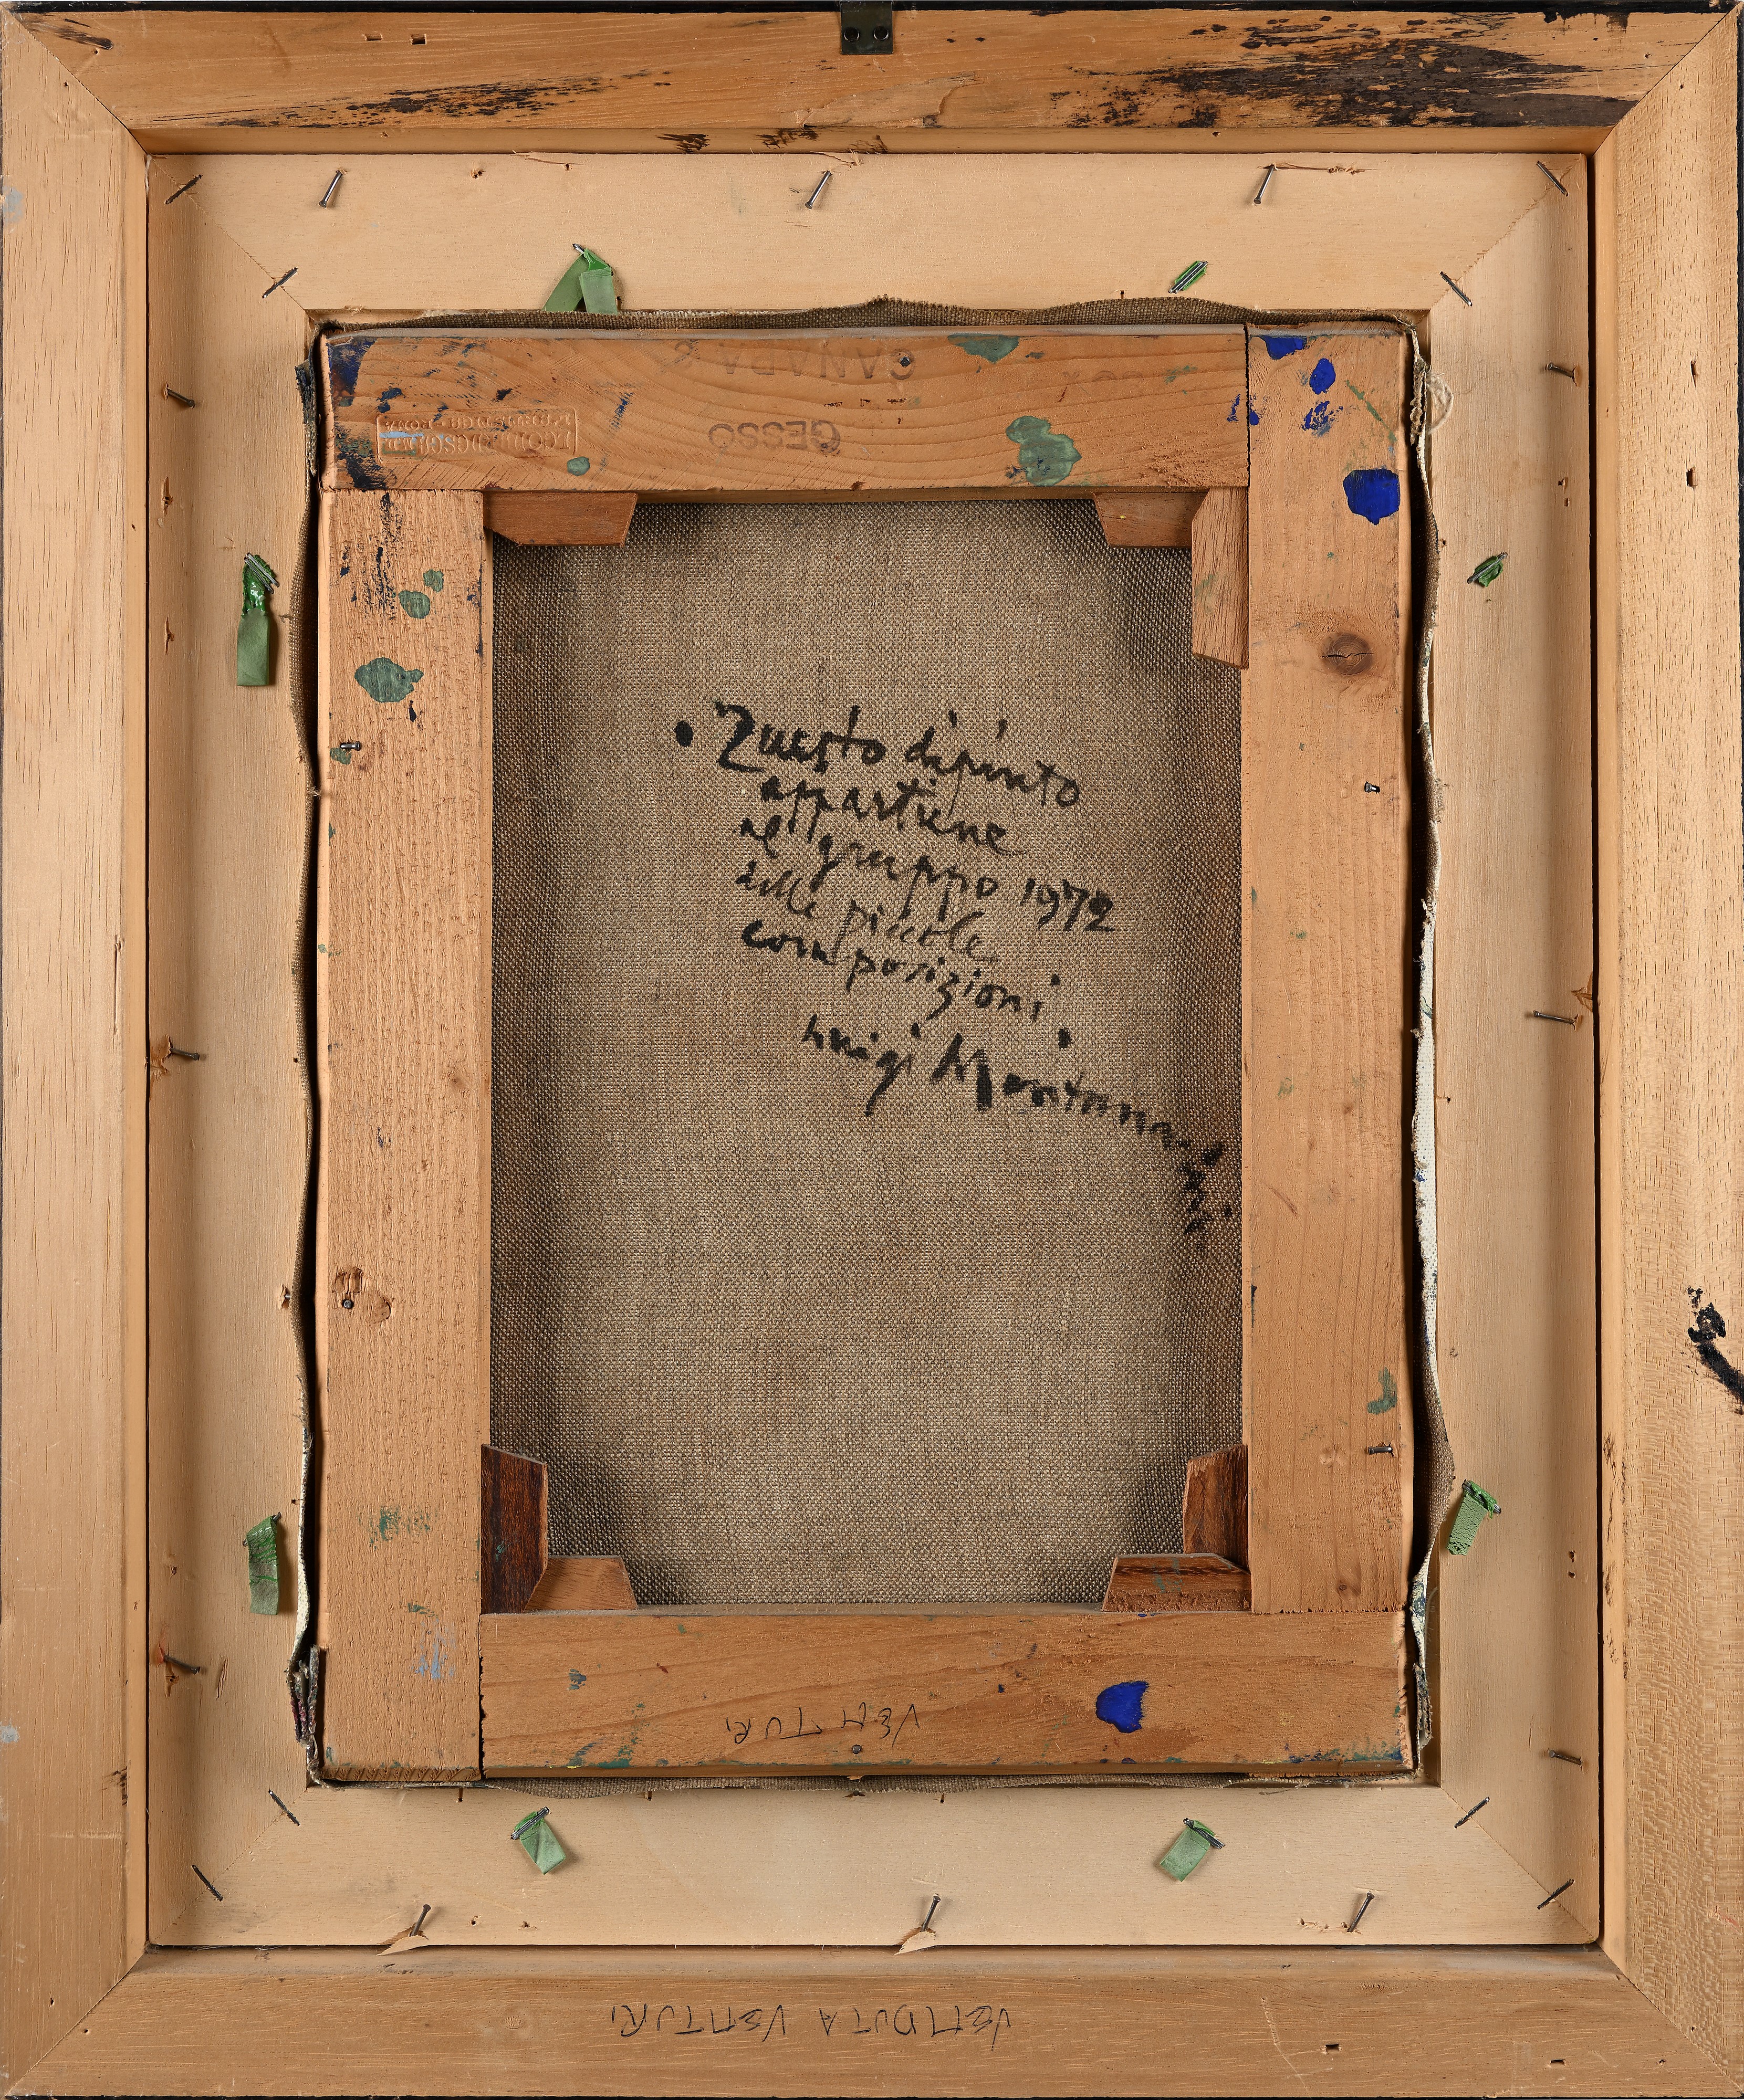 CANAPA &
GESSO
• Questo dipinto
appartiene
al gruppo 1972
delle piccole
composizioni.
Luigi Montanarini
VENTURI
VENDUTA VENTURI